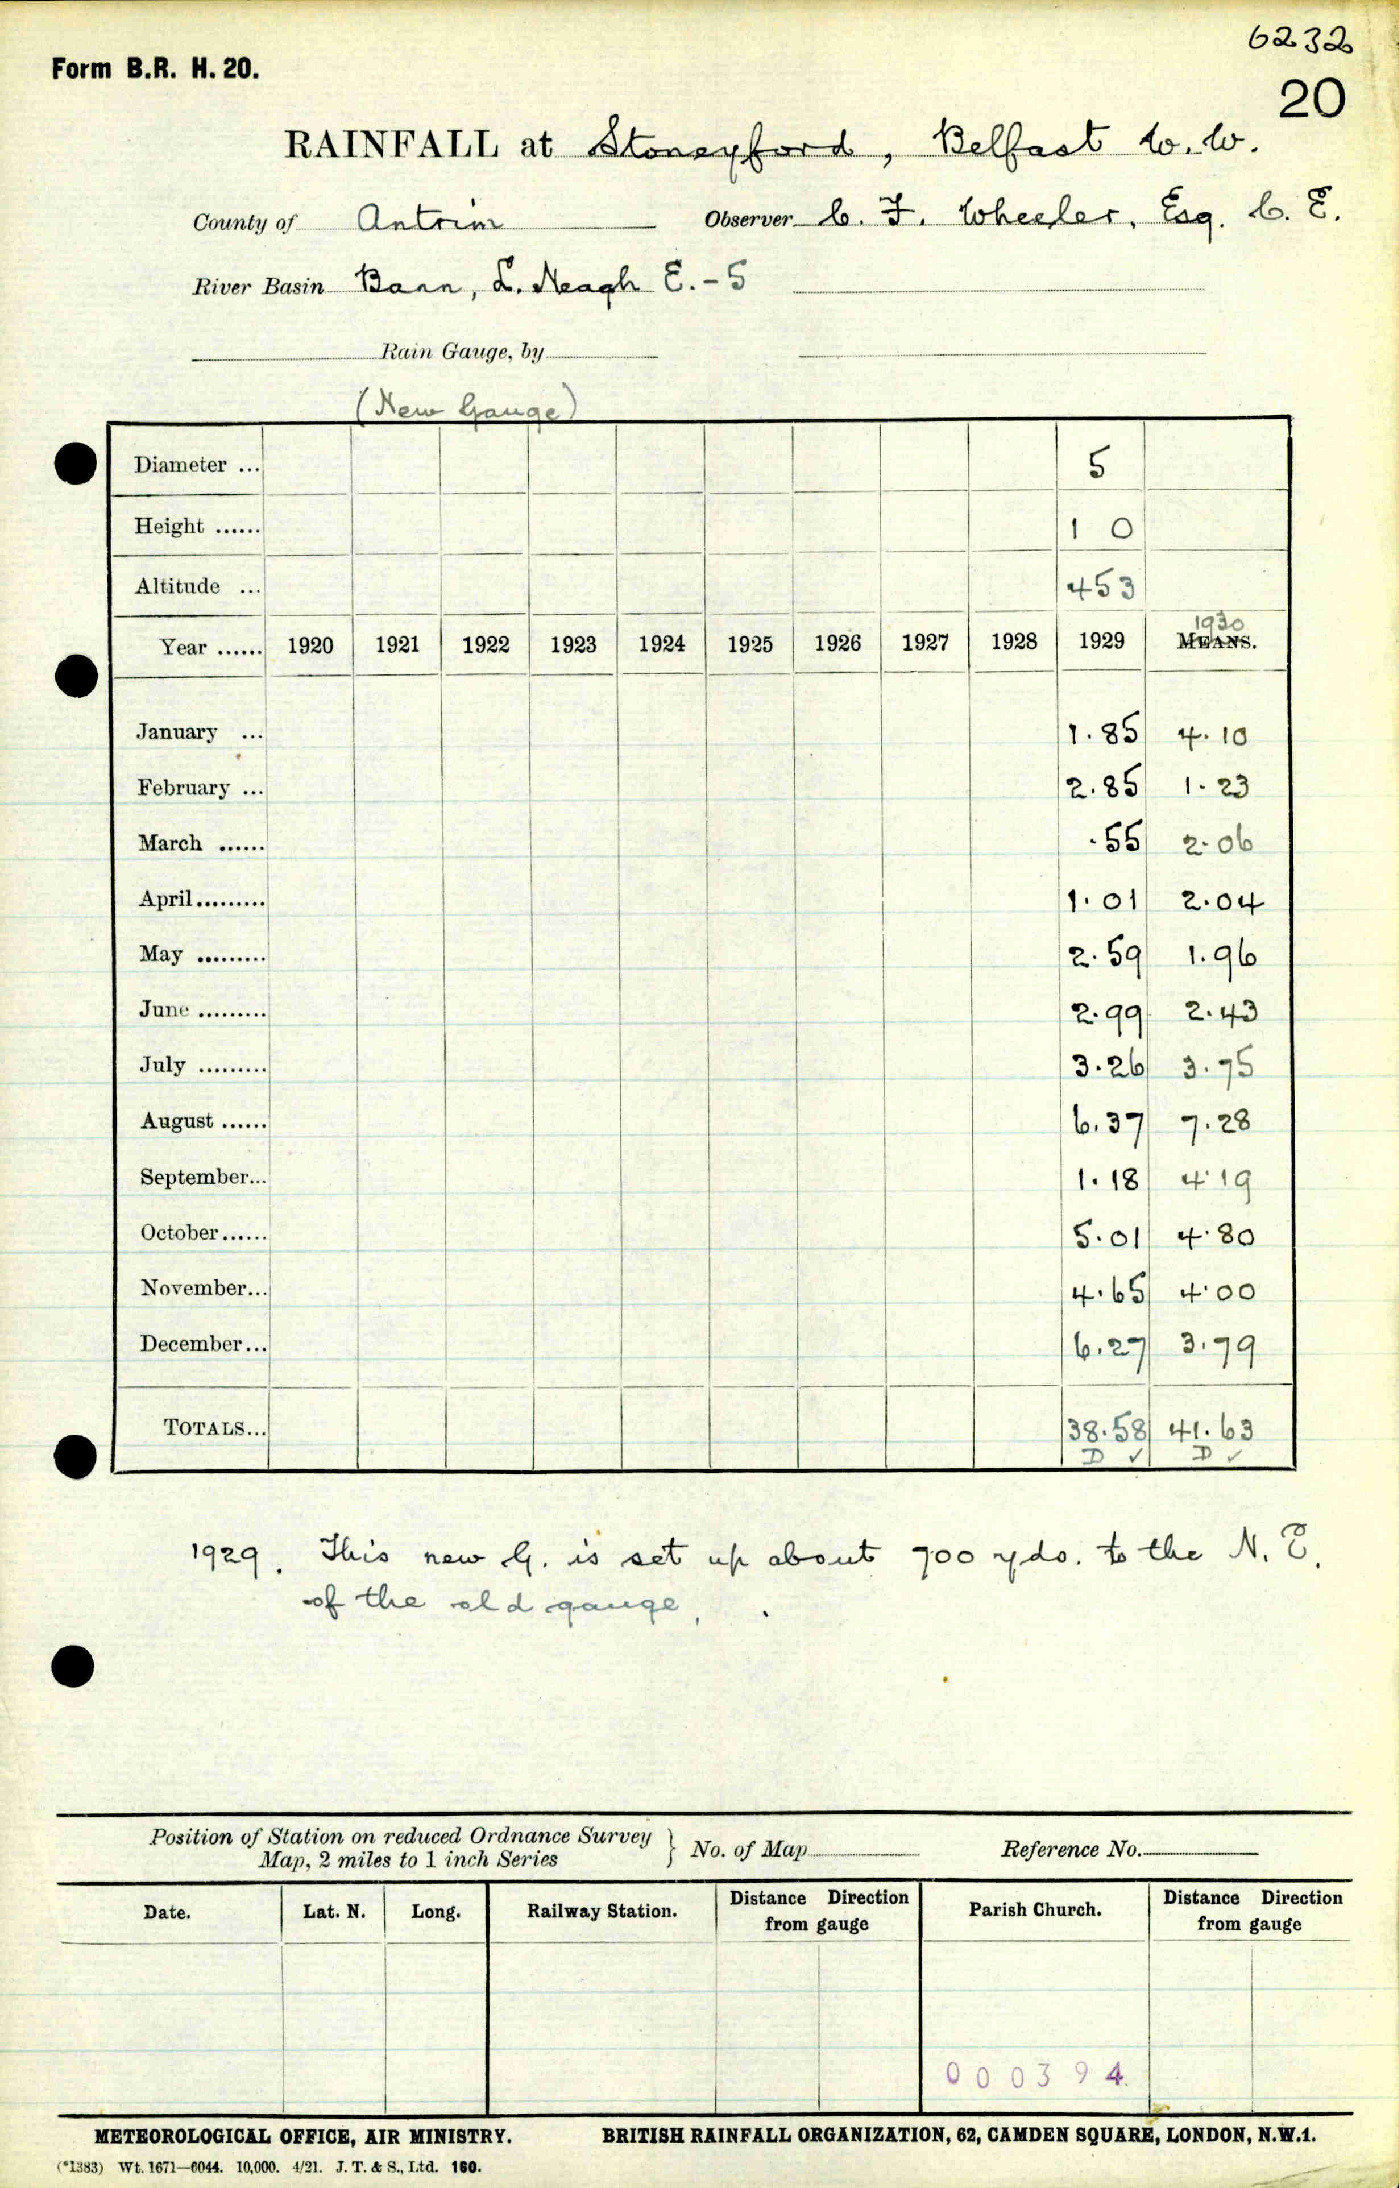 6232
Form B.R. H. 20.
20
RAINFALL at Stoneyford, Belfast W. W.
County of Antrim Observer C. F. Wheeler, Esq. C. E.
River Basin Bann, L. Neagh E.-5
Rain Gauge, by
(New Gauge)
Diameter ... 5
Height ...... 1 0
Altitude ... 453
1930
Year ...... 1920 1921 1922 1923 1924 1925 1926 1927 1928 1929 MEANS.
January ... 1.85 4.10
February ... 2.85 1.23
March ...... .55 2.06
April......... 1.01 2.04
May ......... 2.59 1.96
June ......... 2.99 2.43
July ......... 3.26 3.75
August ...... 6.37 7.28
September... 1.18 4.19
October...... 5.01 4.80
November... 4.65 4.00
December... 6.27 3.79
TOTALS... 38.58 41.63
D ✓ D ✓
1929. This new G. is set up about 700 yds. to the N. E.
of the old gauge.
Position of Station on reduced Ordnance Survey
Map, 2 miles to 1 inch Series } No. of Map Reference No.
Date. Lat. N. Long. Railway Station. Distance Direction from gauge Parish Church. Distance Direction from gauge
000394
METEOROLOGICAL OFFICE, AIR MINISTRY. BRITISH RAINFALL ORGANIZATION, 62, CAMDEN SQUARE, LONDON, N.W.1.
(*1383) Wt. 1671—6044. 10,000. 4/21. J. T. & S., Ltd. 160.